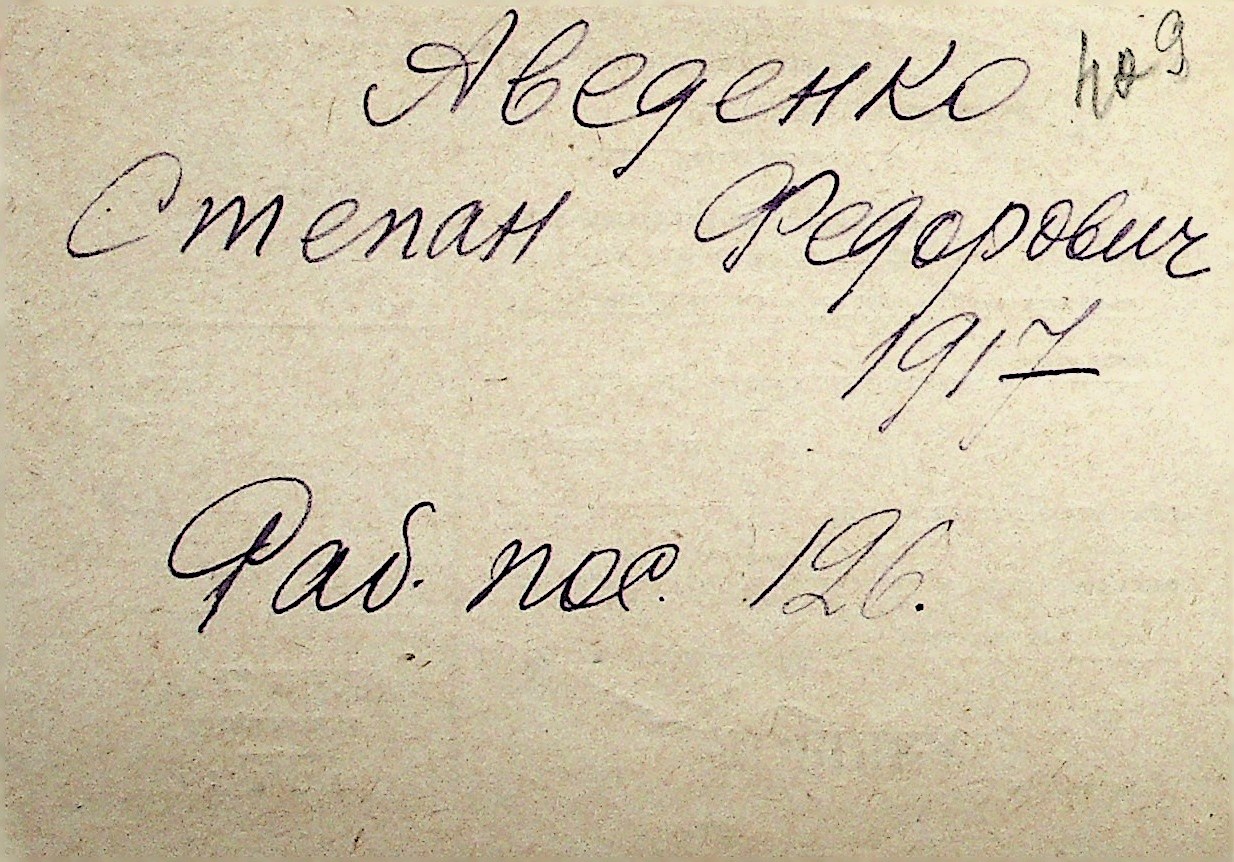 Яведенко
Степан Федорович
1917
Раб. пос. 126.